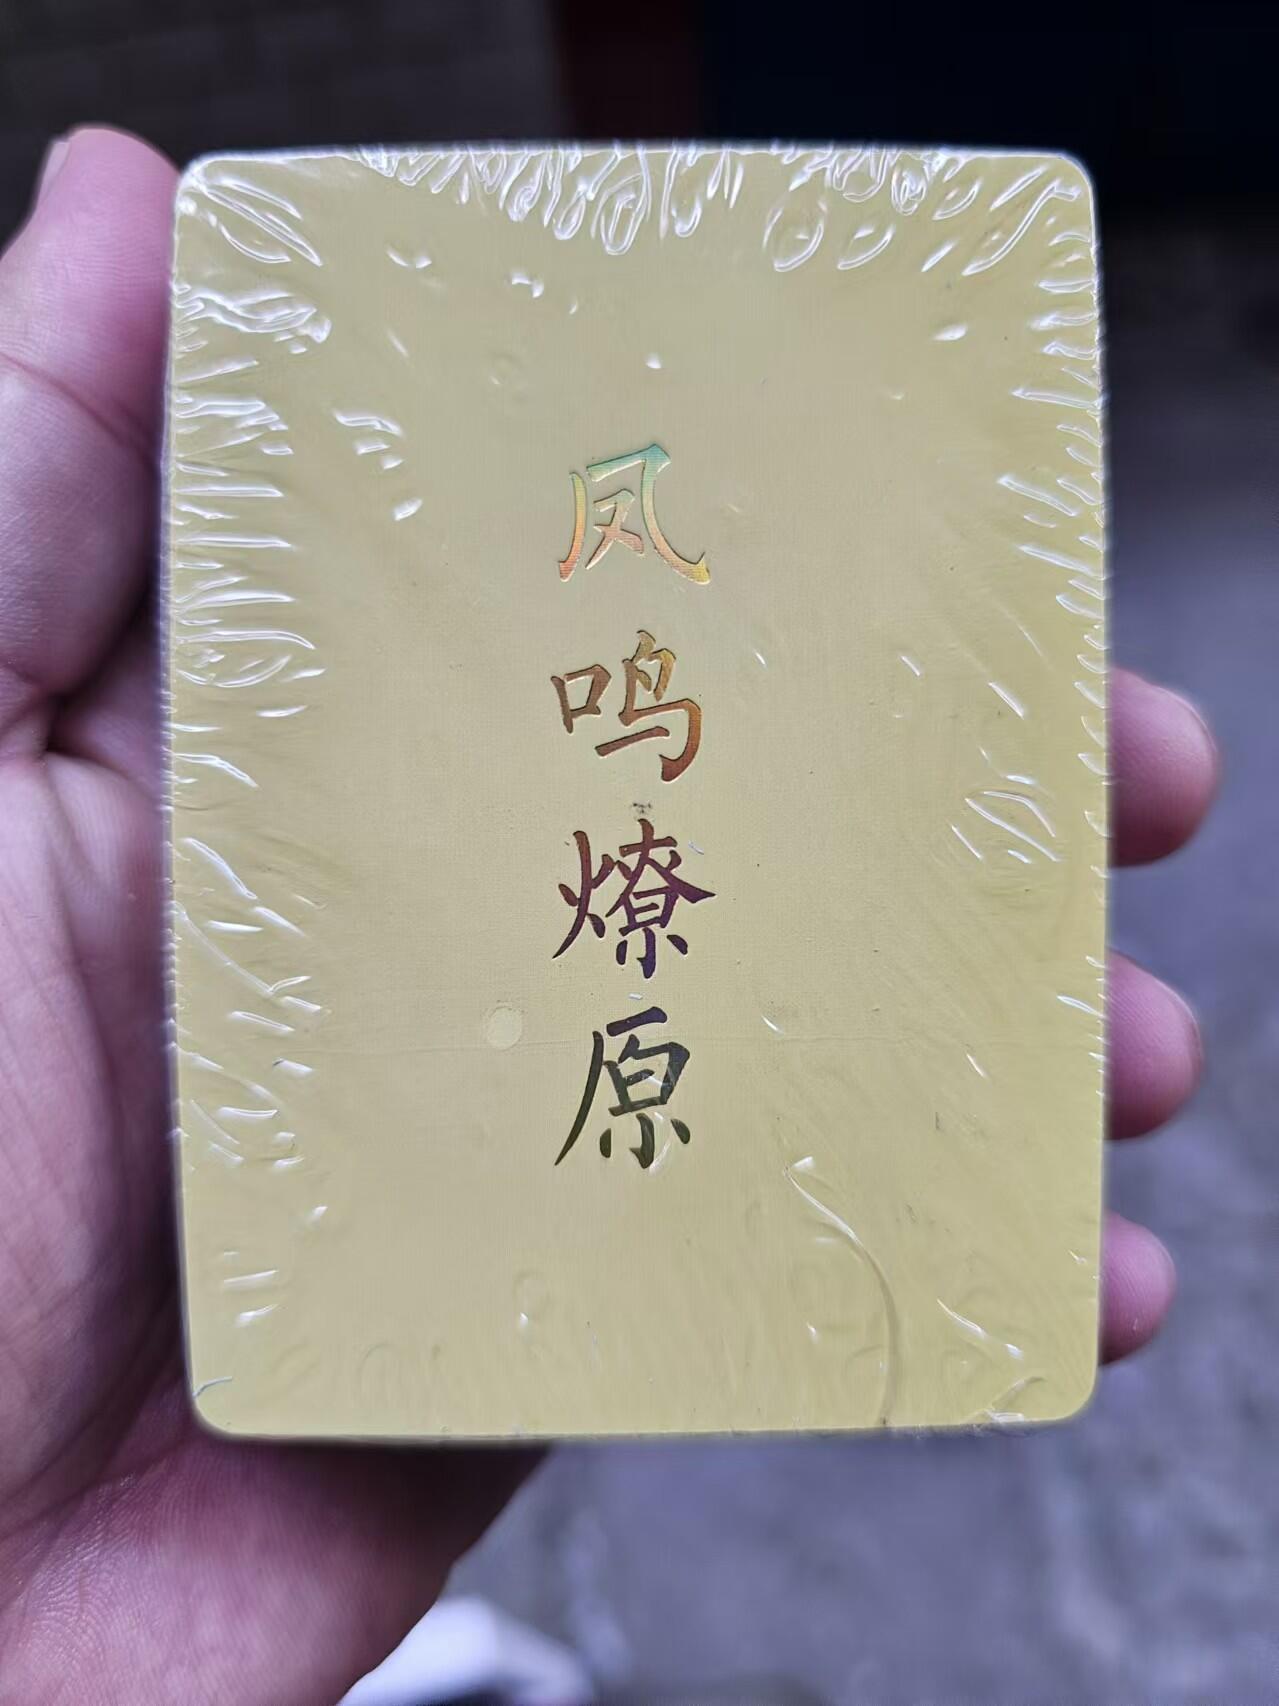 凤鸣燎原